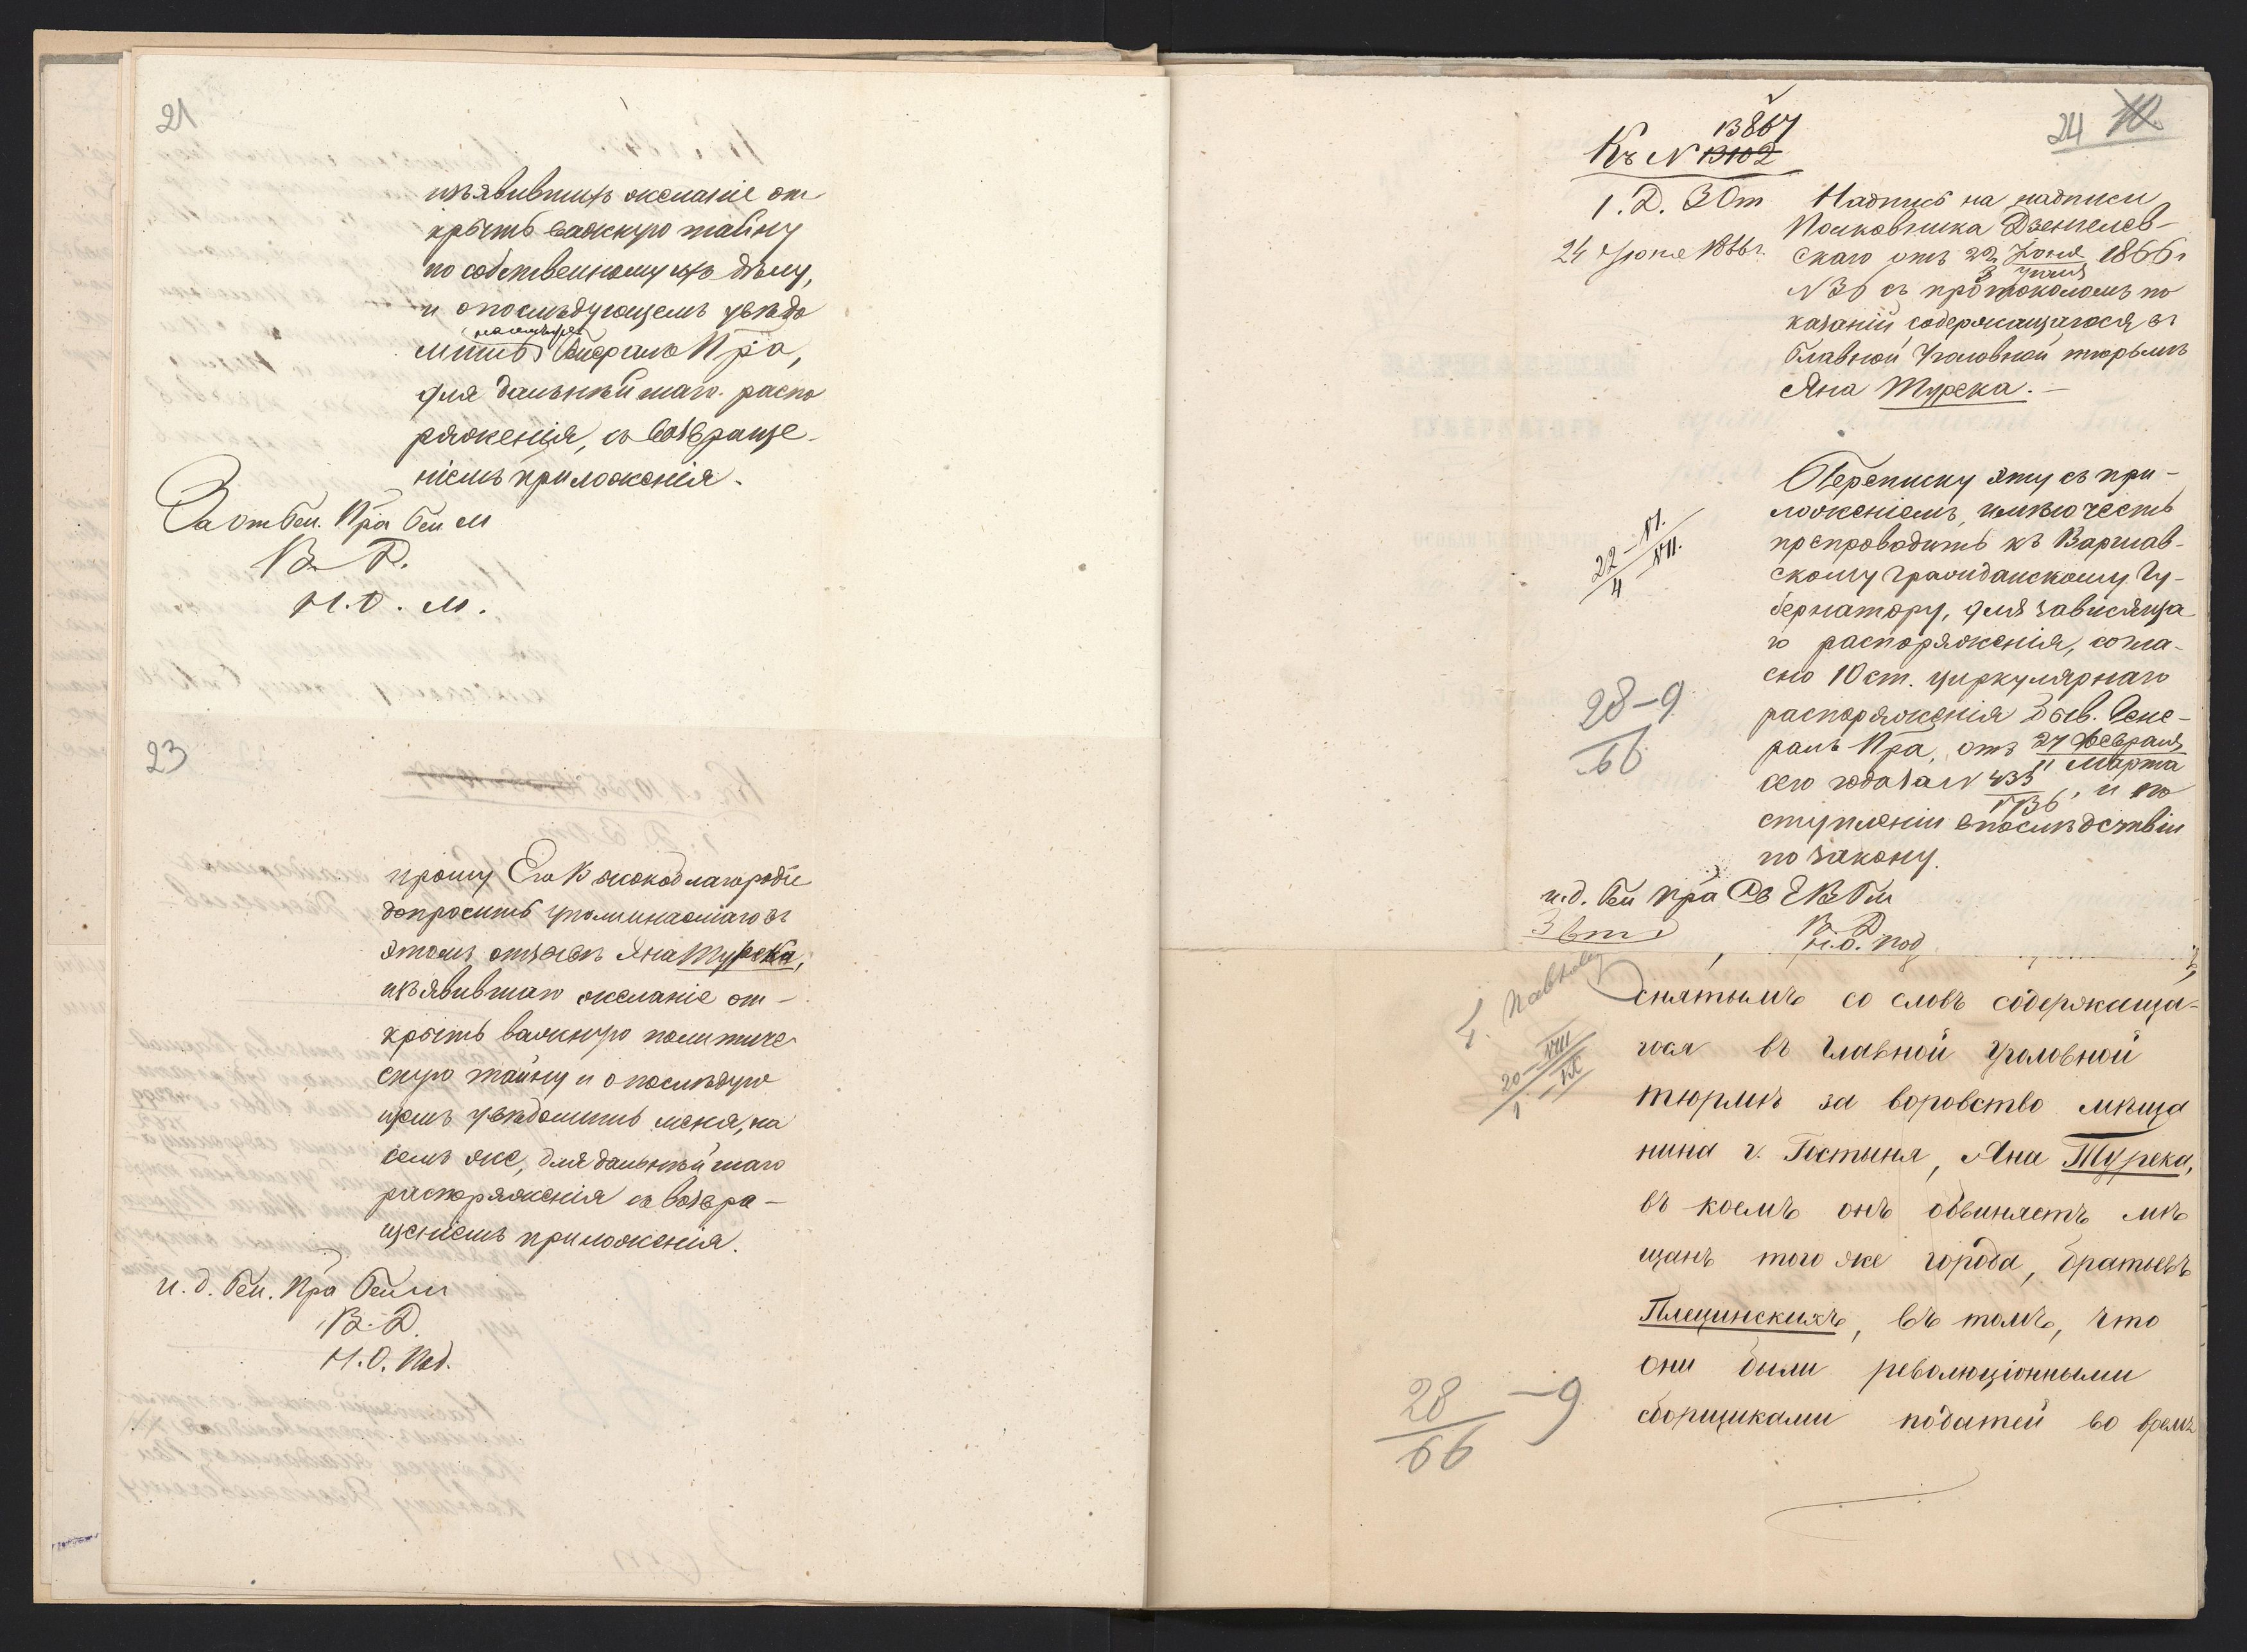 21
изъявившихъ желаніе от
крыть важную тайну
по собственному ихъ дѣлу,
и опослѣдующемъ увѣдо
мить Генералъ Пра,
для дальнѣйшаго распо
ряженія, съ возвраще-
ніемъ приложенія.
За от Ген. Пра Ген М
В. Д.
Н. О. М.
23
прошу Его Высокоблагородіе
допросить упоминаемаго въ
этомъ отзывѣ Яна Турека,
изъявившаго желаніе от-
крыть важную политиче
скую тайну и о послѣдую
щемъ увѣдомить меня, на
семъ же, для дальнѣйшаго
распоряженія съ возвра-
щеніемъ приложенія.
и. д. Ген. Пра Ген м
В. Д.
Н. О. Под.
24 10
13867
Къ N 13102
1. Д. 3 От
24 Іюня 1866 г.
Надпись на надписи
Полковника Дзенгелев-
скаго отъ 22 Іюня 1866 г
3 Іюля
N 36 съ протоколомъ по
казаній содержащагося въ
Главной Уголовной тюрьмѣ
Яна Турека.—
22 – VI.
4 – VII.
Переписку эту съ при-
ложеніемъ, имѣю честь
препроводить къ Варшав-
скому Гражданскому Гу-
бернатору, для зависяща
го распоряженія, согла-
сно 10 ст. циркулярнаго
распоряженія бывш. Гене-
ралъ Пра, отъ 27 Февраля
11 Марта
сего года за N 433, и по
1736
ступленіи впослѣдствіи
по закону.
28–9
66
и. д. Ген Пра Св Е В Г м
В. Д
Н. О. Под
снятымъ со словъ содержаща-
гося въ главной уголовной
тюрьмѣ за воровство мѣща
нина г. Гостыня, Яна Турека,
въ коемъ онъ обвиняетъ мѣ
щанъ того же города, братьевъ
Плещинскихъ, въ томъ, что
они были революціонными
сборщиками податей во время
20 – VIII
1 – IX
28 – 9
66